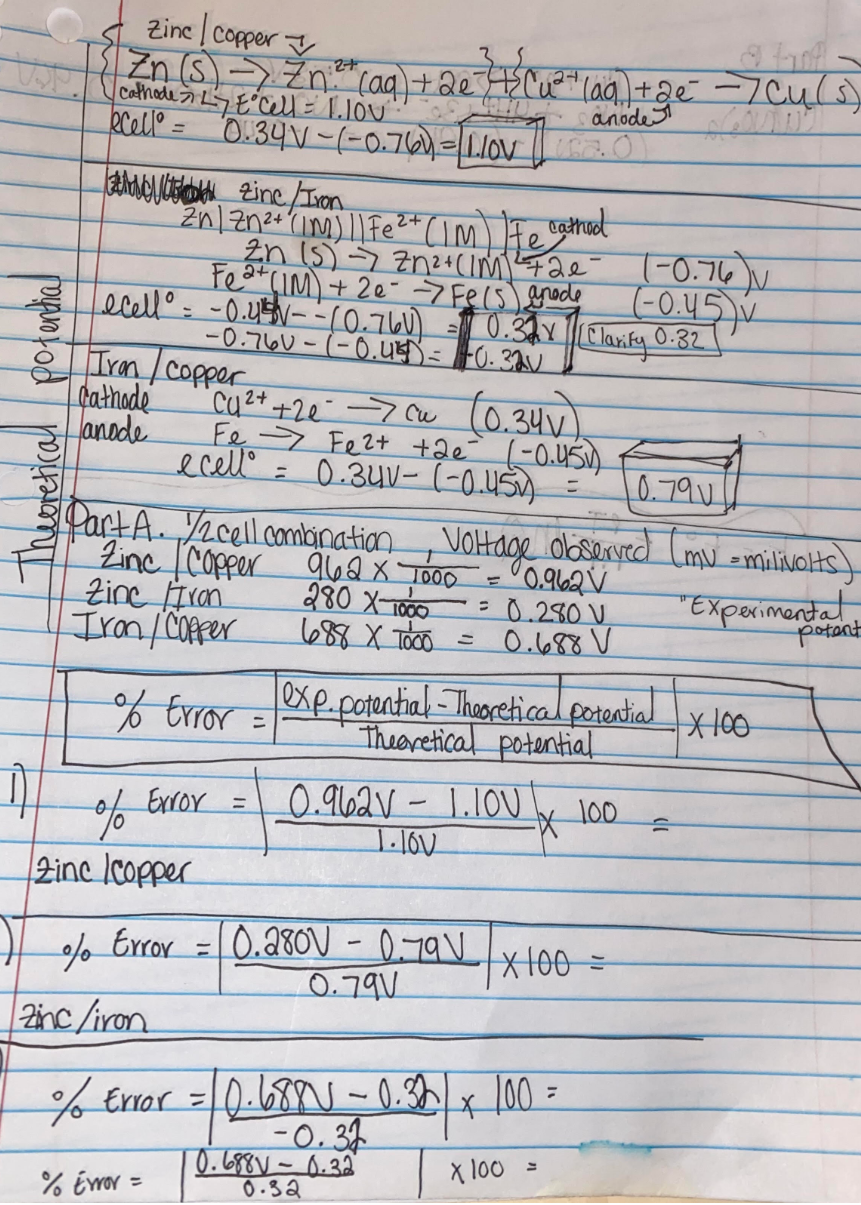 zinc/copper ↴
{ Zn(s) → Zn²⁺ (aq) + 2e⁻ } + { Cu²⁺ (aq) + 2e⁻ → Cu(s)
cathode → ↳ E°cell = 1.10V anode
ecell° = 0.34V - (-0.76V) = 1.10V
zinc/Iron
Zn | Zn²⁺ (1M) || Fe²⁺ (1M) | Fe cathod
Zn (s) → Zn²⁺ (1M) + 2e⁻ (-0.76)V
Fe²⁺ (1M) + 2e⁻ → Fe(s) anode (-0.45)V
ecell° = -0.45V - -(0.76V) = 0.32V Clarify 0.32
-0.76V - (-0.45) = -0.32V
Theoretical potential
Iron/copper
cathode Cu²⁺ + 2e⁻ → Cu (0.34V)
anode Fe → Fe2+ + 2e⁻ (-0.45V)
ecell° = 0.34V - (-0.45V) = 0.79V
Part A. 1/2 cell combination , Voltage observed (mV = milivolts)
Zinc | Copper 962 × 1/1000 = 0.962V
Zinc / Iron 280 × 1/1000 = 0.280V "Experimental
Iron / Copper 688 × 1/1000 = 0.688V potent
% Error = | exp. potential - Theoretical potential / Theoretical potential | × 100
1) % Error = | 0.962V - 1.10V / 1.10V | × 100 =
Zinc/copper
) % Error = | 0.280V - 0.79V / 0.79V | × 100 =
Zinc/iron
% Error = | 0.688V - 0.32 / -0.32 | × 100 =
% Error = | 0.688V - 0.32 / 0.32 | × 100 =